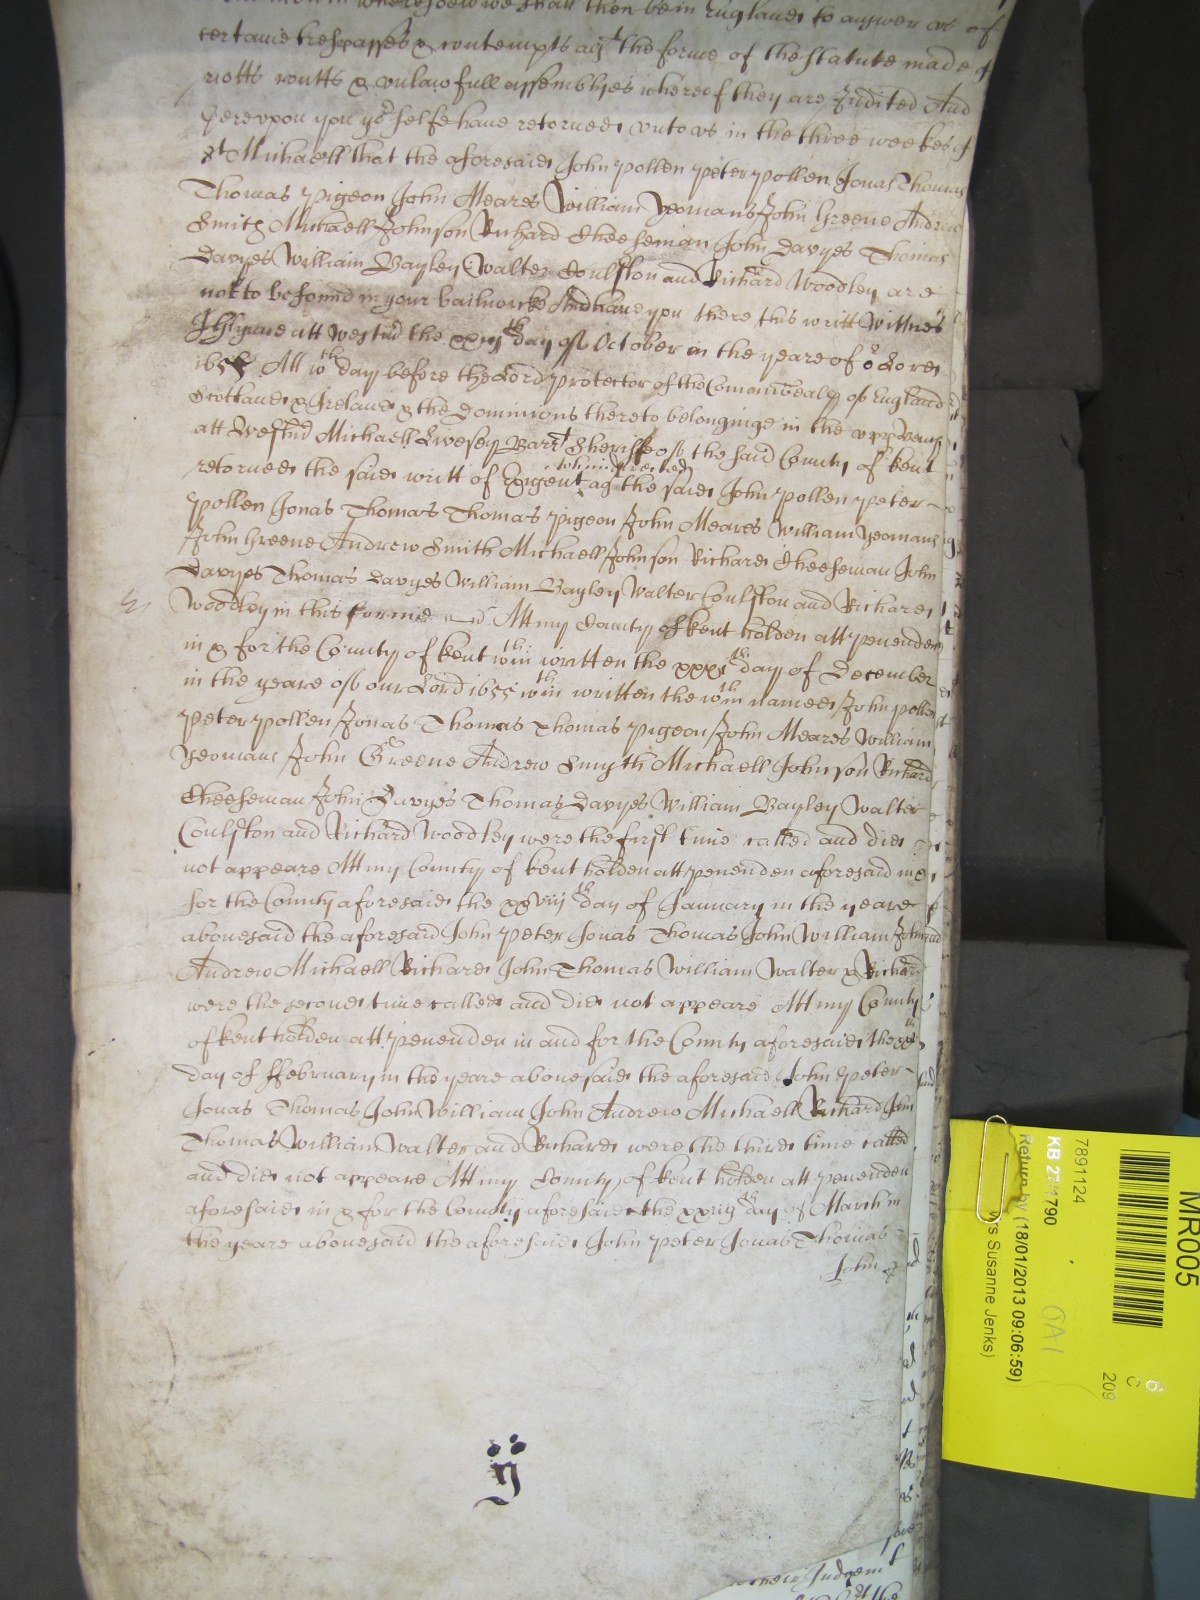 wheresoever we shall then be in England to answer us of
certaine trespasses & contempts agt the forme of the statute made of
riotts routts & unlawfull assemblyes whereof they are Indited And
hereupon you yor selfe have retorned unto us in the three weekes of
St Michaell that the aforesaid John Pollen Peter Pollen Jonas Thomas
Thomas Pigeon John Meares William Yeomans John Greene Andrew
Smith Michaell Johnson Richard Cheeseman John Davyes Thomas
Davyes William Bayley Walter Coulston and Richard Woodley are
not to be found in your bailiwicke And have you there this writt Wittnes
att Westmr the day of October in the yeare of or Lord
165 Att wch day before the Lord Protector of the Comonwealth of England
Scotland & Ireland & the Dominions thereto belonginge in the upper bench
att Westmr Michaell Livesey Barrt Sheriffe of the said County of Kent
retorned the said writt of Exigent to him directed agt the said John Pollen Peter
Pollen Jonas Thomas Thomas Pigeon John Meares William Yeomans
John Greene Andrew Smith Michaell Johnson Richard Cheeseman John
Davyes Thomas Davyes William Bayley Walter Coulston and Richard
Woodley in this forme Att my County of Kent holden att Penenden
in & for the County of Kent wthin written the xxxi th day of December
in the yeare of our Lord 1655 wthin written the wthin named John Pollen
Peter Pollen Jonas Thomas Thomas Pigeon John Meares William
Yeomans John Greene Andrew Smyth Michaell Johnson Richard
Cheeseman John Davyes Thomas Davyes William Bayley Walter
Coulston and Richard Woodley were the first time called and did
not appeare Att my County of Kent holden att Penenden aforesaid in &
for the County aforesaid the xxviij th day of January in the yeare
abovesaid the aforesaid John Peter Jonas Thomas John William John
Andrew Michaell Richard John Thomas William Walter & Richard
were the second time called and did not appeare Att my County
of Kent holden att Penenden in and for the County aforesaid the
day of February in the yeare abovesaid the aforesaid John Peter
Jonas Thomas John William John Andrew Michaell Richard John
Thomas William Walter and Richard were the third time called
and did not appeare Att my County of Kent holden att Penenden
aforesaid in & for the County aforesaid the xxiiij th day of March in
the yeare abovesaid the aforesaid John Peter Jonas Thomas
John
ij
Judgemt
MR005
7891124
KB 27/1790
Return by (18/01/2013 09:06:59)
Susanne Jenks)
6
C
209